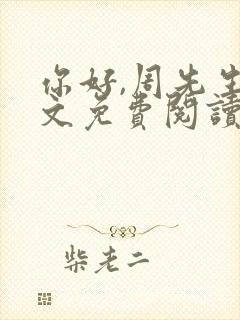 你好,周先生
文免费閱讀
柴老二